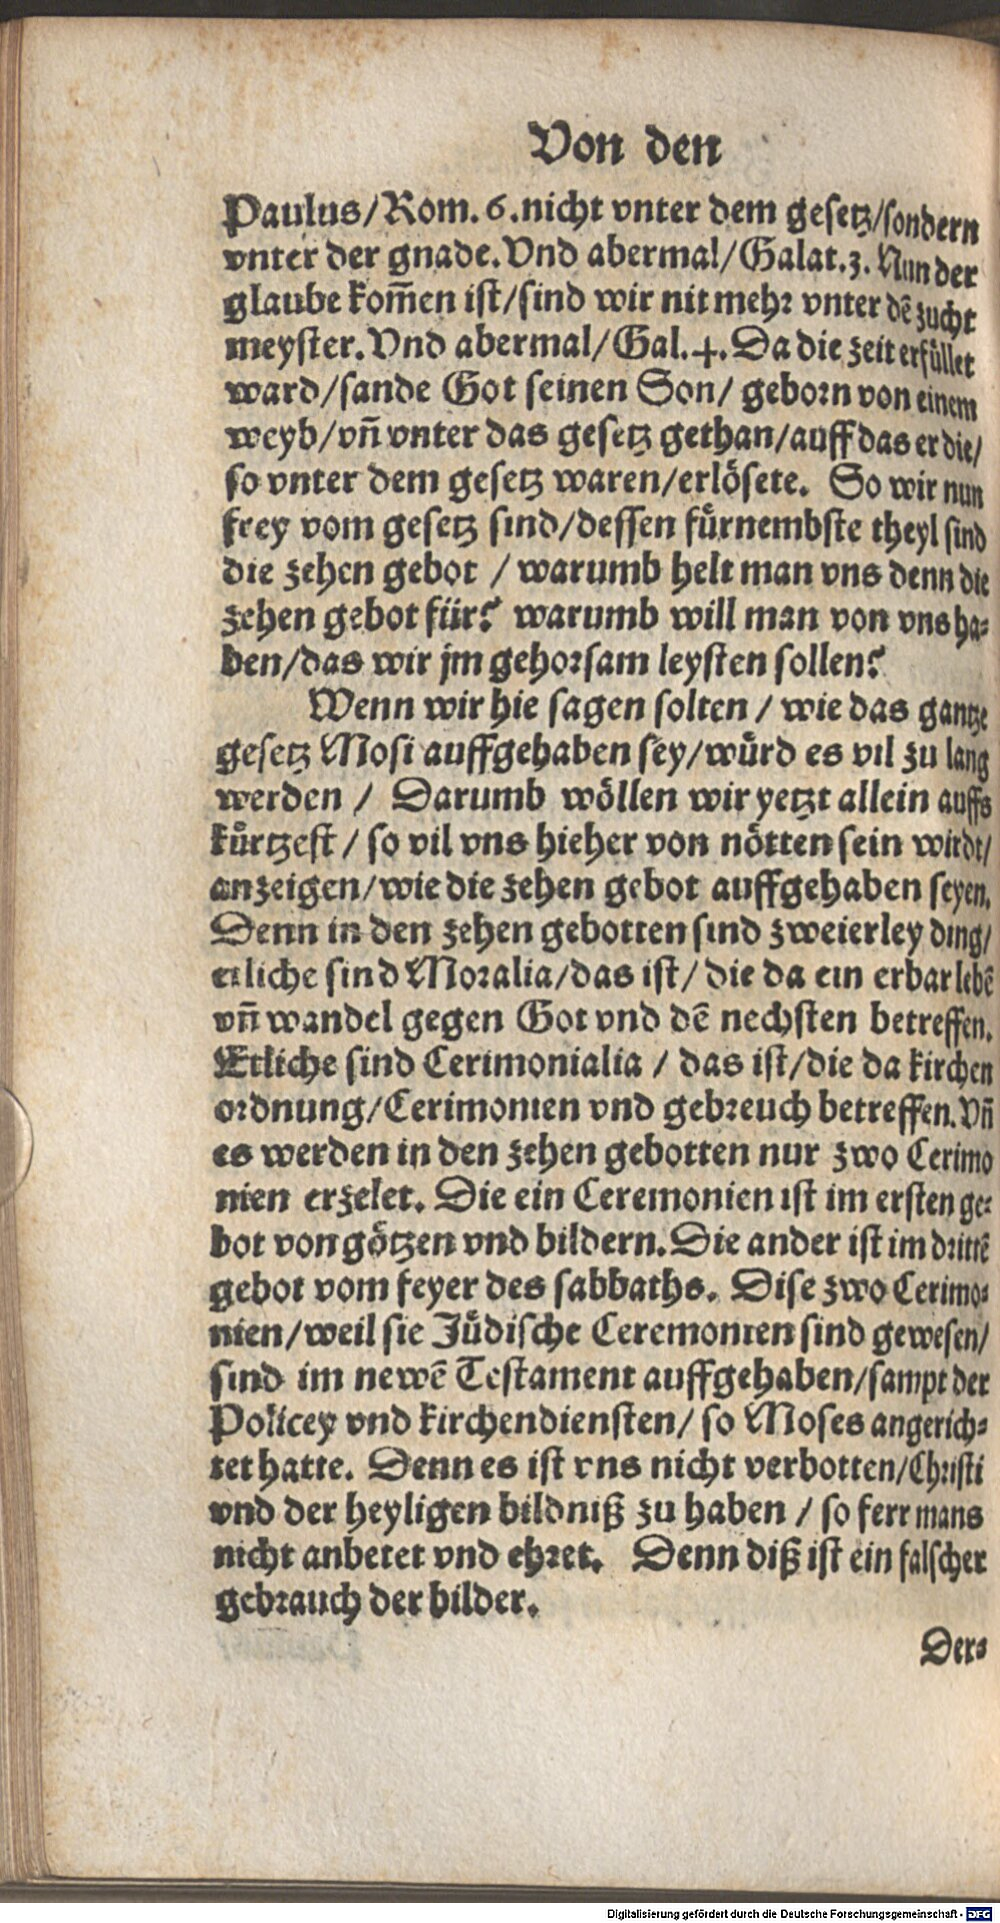 Von den
Paulus/Rom. 6. nicht vnter dem gesetz/sondern
vnter der gnade. Vnd abermal/Galat. 3. Nun der
glaube kom̄en ist/sind wir nit mehr vnter dē zucht
meyster. Vnd abermal/Gal. 4. Da die zeit erfüllet
ward/sande Got seinen Son/ geborn von einem
weyb/vn̄ vnter das gesetz gethan/auff das er die/
so vnter dem gesetz waren/erlösete. So wir nun
frey vom gesetz sind/dessen fürnembste theyl sind
die zehen gebot / warumb helt man vns denn die
zehen gebot für? warumb will man von vns ha-
ben/das wir jm gehorsam leysten sollen?
Wenn wir hie sagen solten / wie das gantze
gesetz Mosi auffgehaben sey/würd es vil zu lang
werden / Darumb wöllen wir yetzt allein auffs
kürtzest / so vil vns hieher von nötten sein wirdt/
anzeigen/wie die zehen gebot auffgehaben seyen.
Denn in den zehen gebotten sind zweierley ding/
etliche sind Moralia/das ist/ die da ein erbar lebē
vn̄ wandel gegen Got vnd dē nechsten betreffen.
Etliche sind Cerimonialia / das ist/die da kirchen
ordnung/Cerimonien vnd gebreuch betreffen. Vn̄
es werden in den zehen gebotten nur zwo Cerimo
nien erzelet. Die ein Ceremonien ist im ersten ge-
bot von götzen vnd bildern. Die ander ist im drittē
gebot vom feyer des sabbaths. Dise zwo Cerimo-
nien/weil sie Jüdische Ceremonien sind gewesen/
sind im newē Testament auffgehaben/sampt der
Policey vnd kirchendiensten/ so Moses angerich-
tet hatte. Denn es ist vns nicht verbotten/Christi
vnd der heyligen bildniß zu haben / so ferr mans
nicht anbetet vnd ehret. Denn diß ist ein falscher
gebrauch der bilder.
Der-
Digitalisierung gefördert durch die Deutsche Forschungsgemeinschaft - DFG